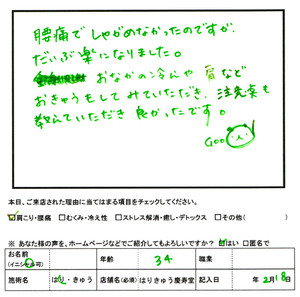 腰痛で しゃがめなかったのですが
だいぶ楽になりました。
おなかの冷えや 肩など
おきゅうもしてみていただき、漢方も
教えていただき 良かったです。
Goo
本日、ご来店された理由に当てはまる項目をチェックしてください。
☑肩こり・腰痛 □むくみ・冷え性 □ストレス解消・癒し・デトックス □その他( )
※ あなた様の声を、ホームページなどでご紹介してもよろしいですか? ☑はい □匿名で
お名前 (イニシャル可) O 年齢 34 職業
施術名 はり・きゅう 店舗名(必須) はりきゅう慶寿堂 記入日 年2月18日